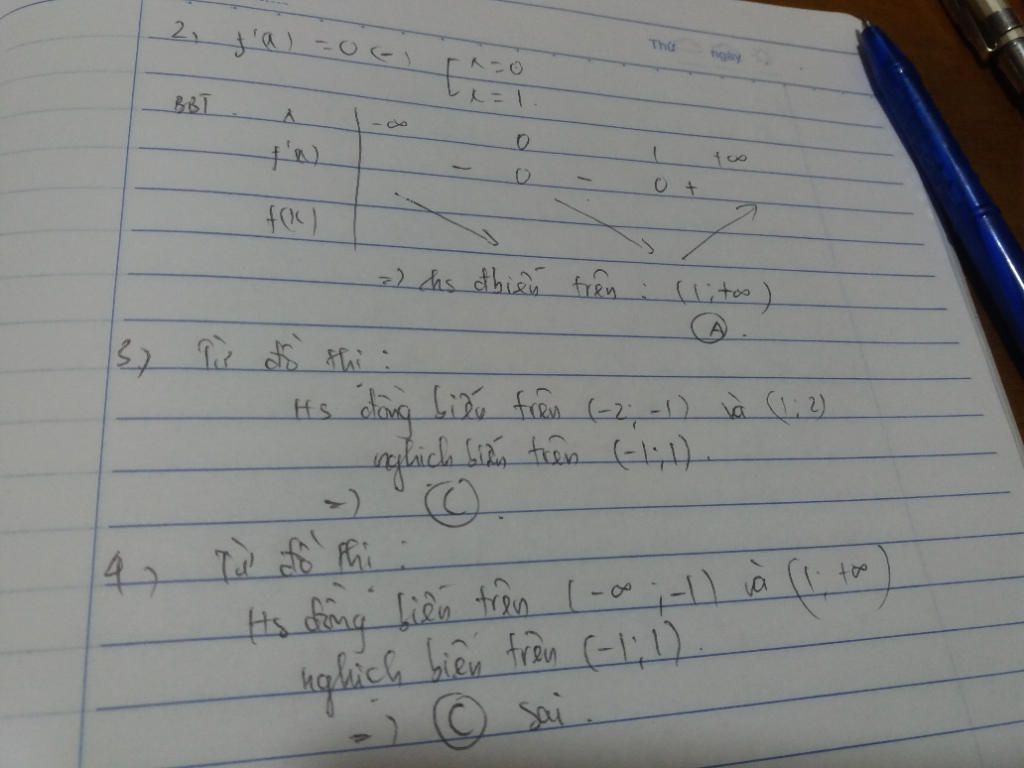 Thứ ngày
2, f'(x) = 0 (=) [ x = 0
x = 1.
BBT. x | -∞ 0 1 +∞
f'(x) - 0 - 0 +
f(x)
=) hs đbiến trên : (1; +∞)
(A).
3) Từ đồ thi :
Hs đồng biến trên (-2; -1) và (1; 2)
nghịch biến trên (-1; 1).
=) (C).
4) Từ đồ thi :
Hs đồng biến trên (-∞; -1) và (1; +∞)
nghịch biến trên (-1; 1).
=) (C) sai.